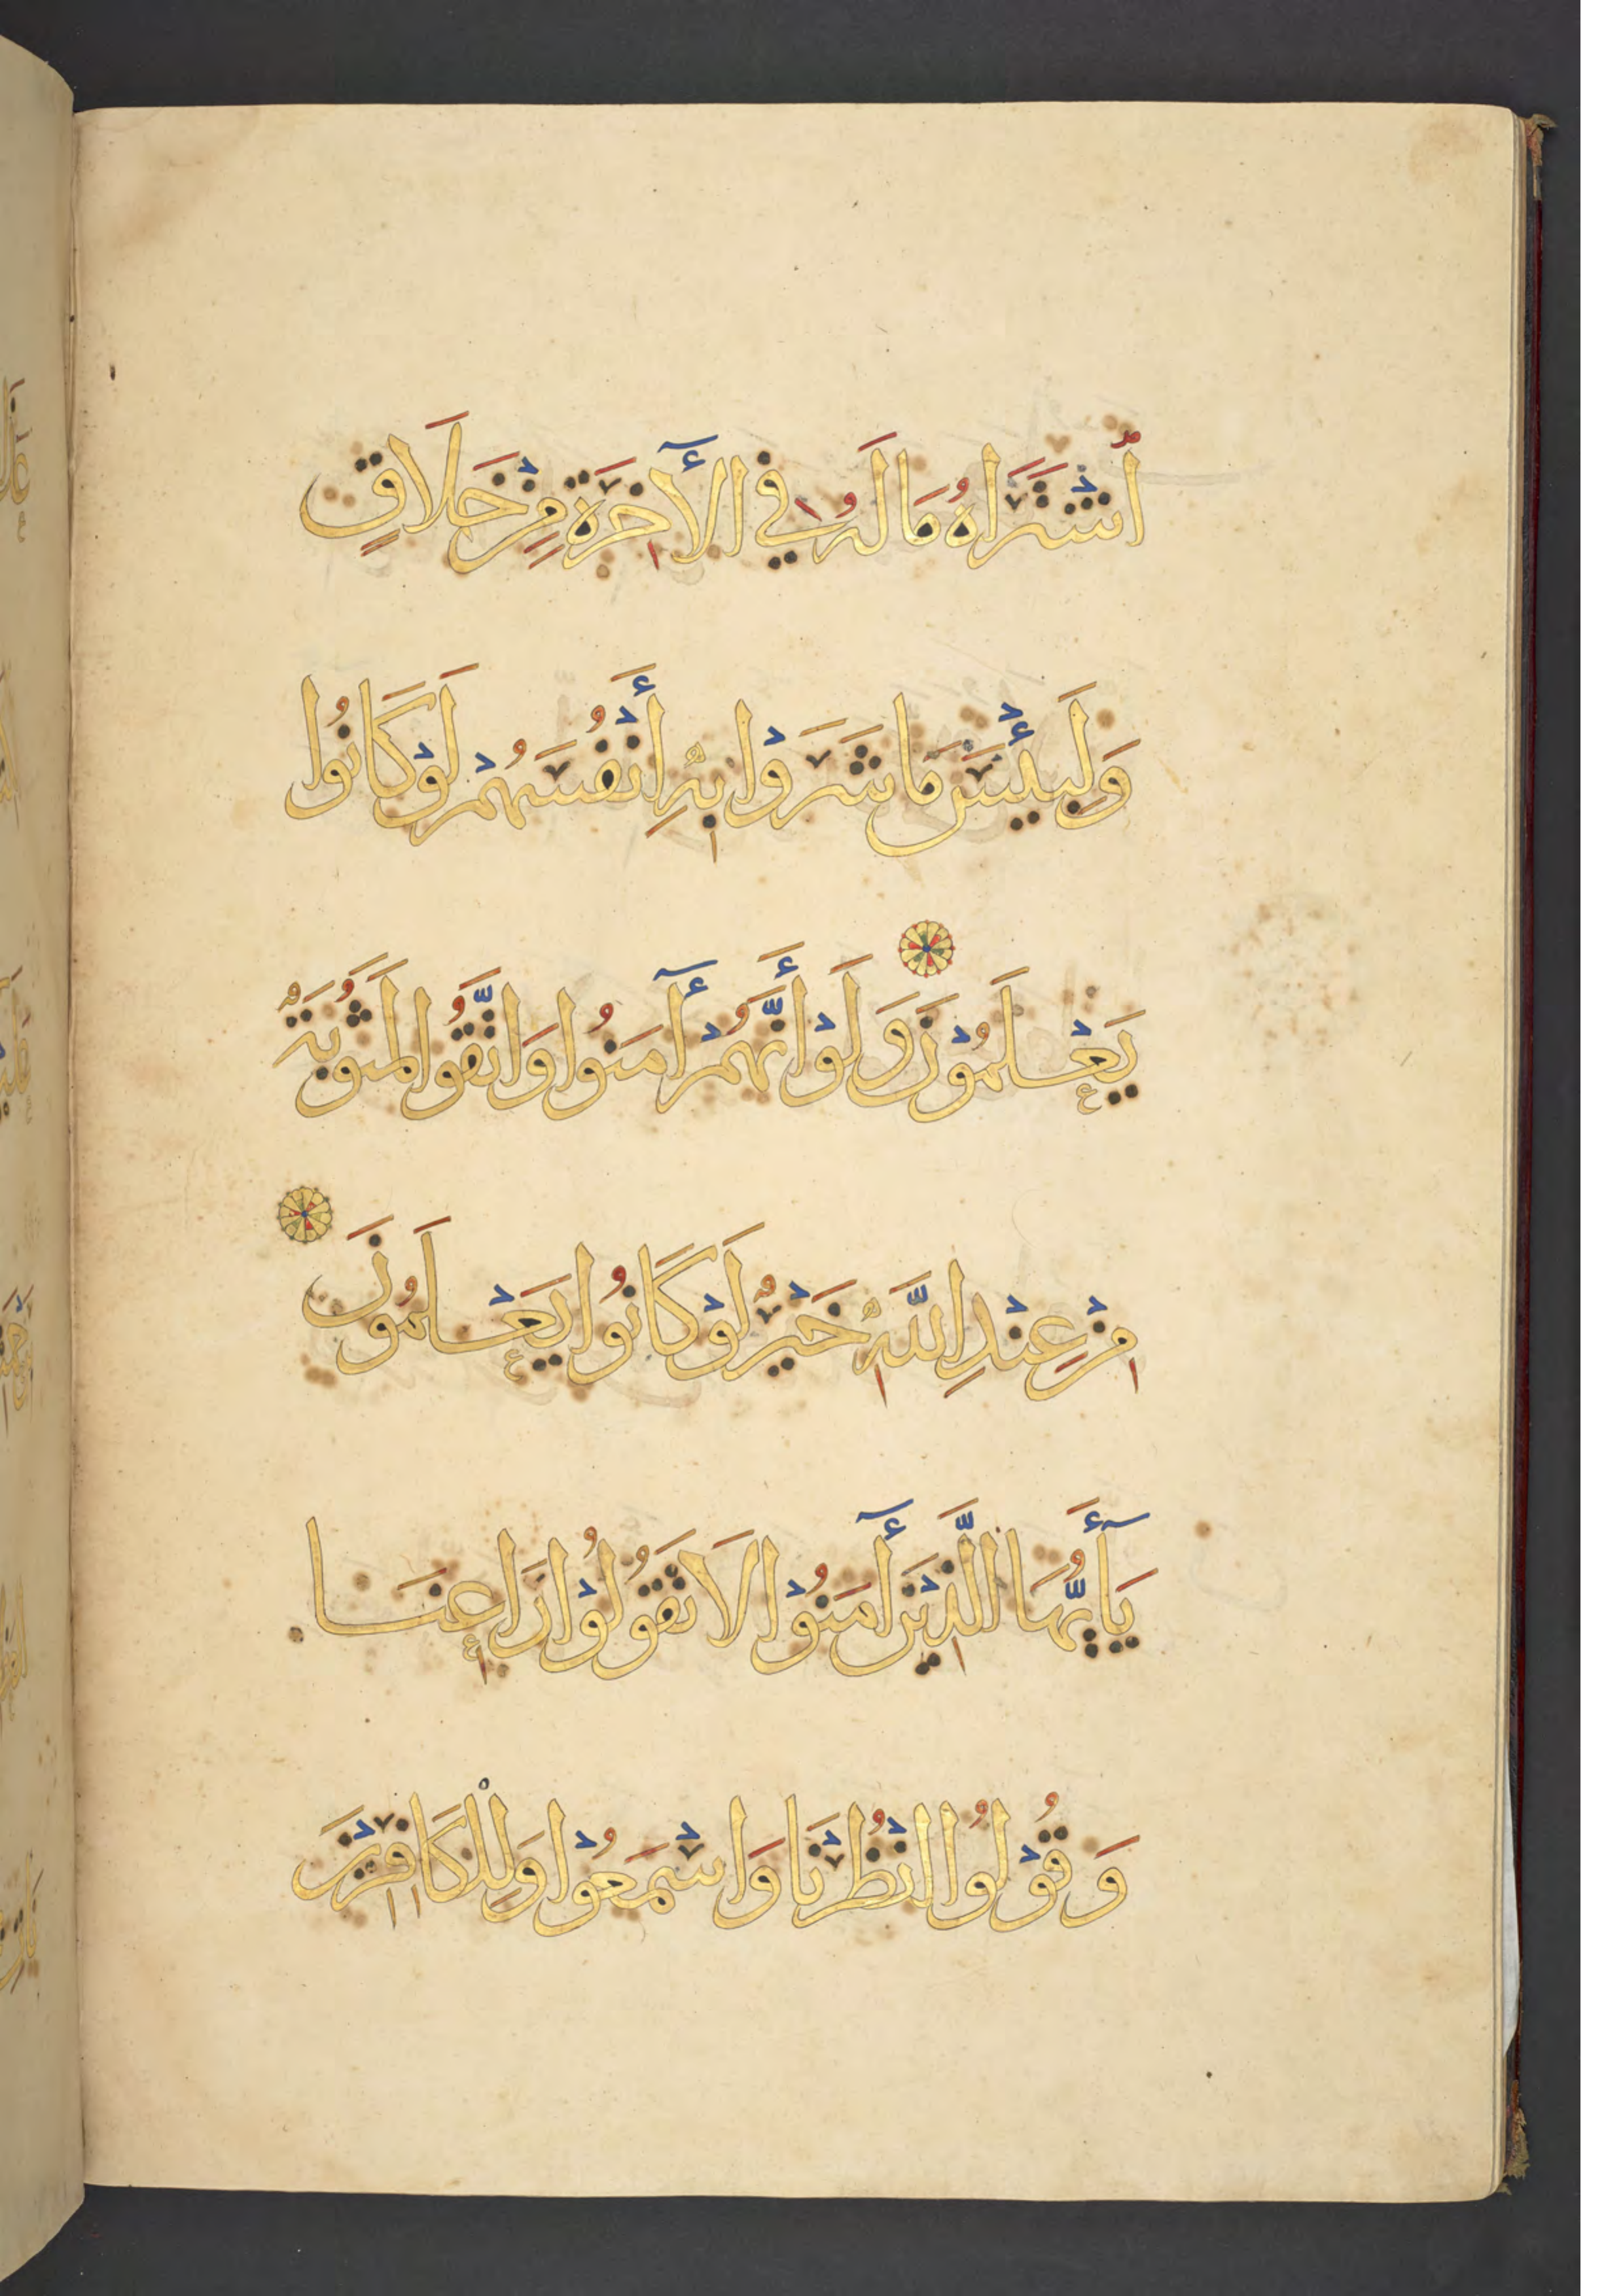 ٱشْتَرَاهُ مَا لَهُ فِي الْآخِرَةِ مِنْ خَلَاقٍ
وَلَبِئْسَ مَا شَرَوْا بِهِ أَنْفُسَهُمْ لَوْ كَانُوا
يَعْلَمُوْنَ وَلَوْ أَنَّهُمْ آمَنُوا وَاتَّقَوُا لَمَثُوبَةٌ
مِنْ عِنْدِ اللَّهِ خَيْرٌ لَوْ كَانُوا يَعْلَمُونَ
يَا أَيُّهَا الَّذِيْنَ آمَنُوْا لَا تَقُولُوْا رَاعِنَا
وَقُوْلُوا انْظُرْنَا وَاسْمَعُوْا وَلِلْكَافِرِيْنَ